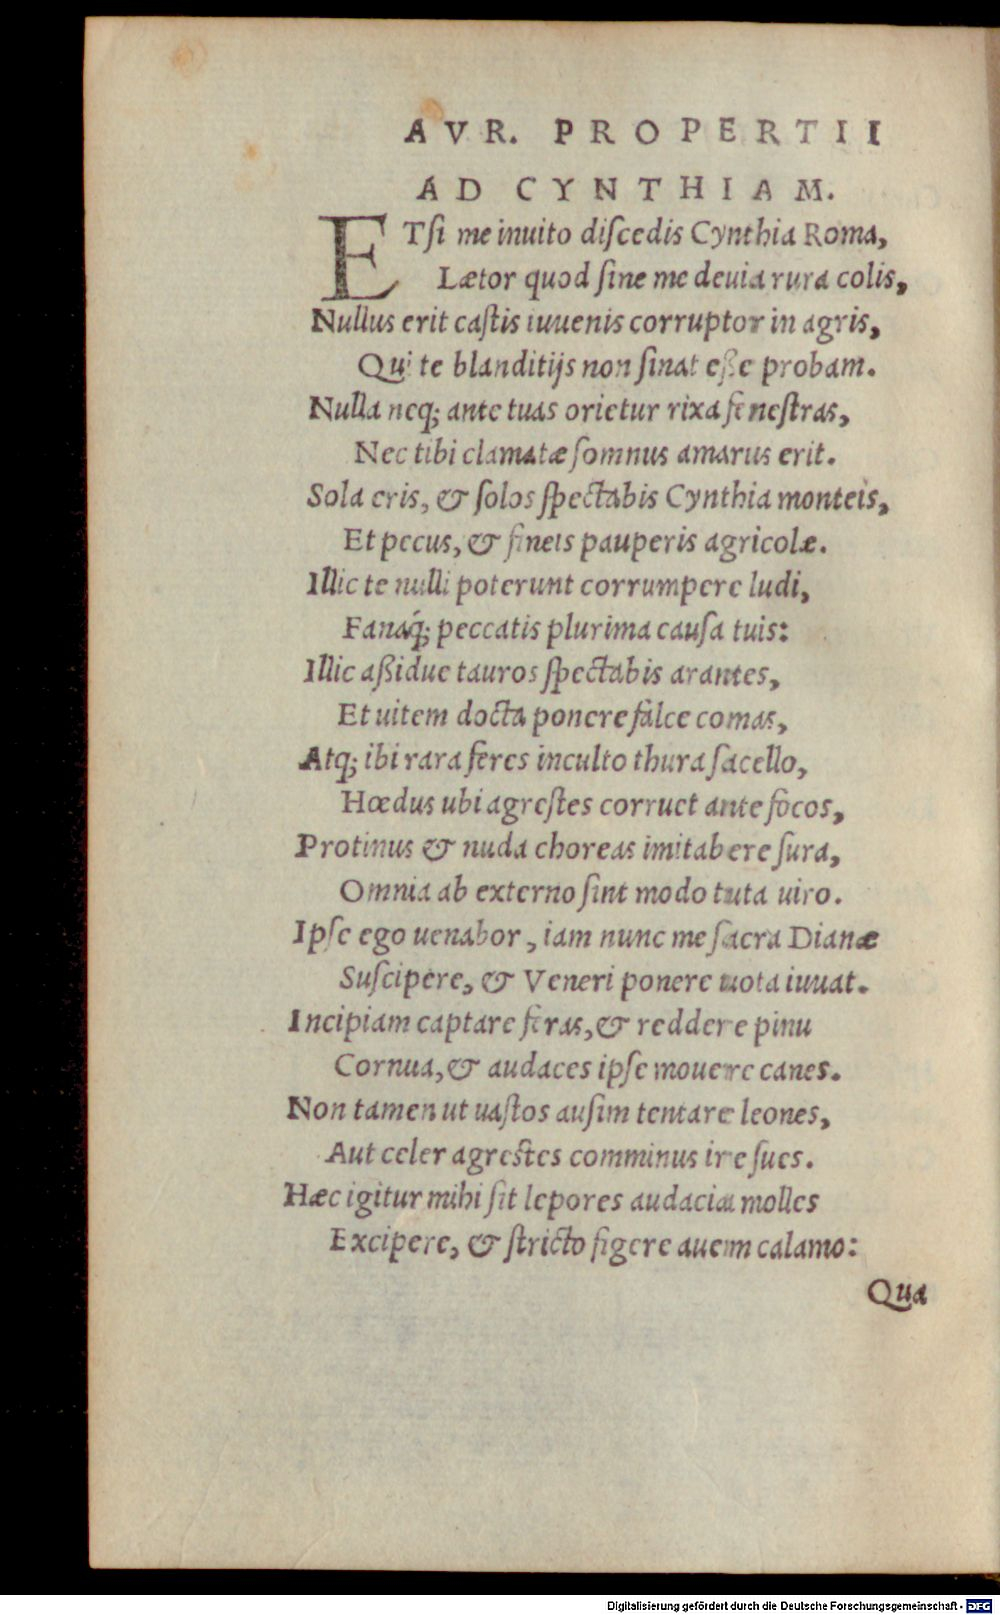 AVR. PROPERTII
AD CYNTHIAM.
ETſi me inuito diſcedis Cynthia Roma,
Lætor quod ſine me deuia rura colis,
Nullus erit caſtis iuuenis corruptor in agris,
Qui te blanditijs non ſinat eße probam.
Nulla neq; ante tuas orietur rixa feneſtras,
Nec tibi clamatæ ſomnus amarus erit.
Sola eris, & ſolos ſpectabis Cynthia monteis,
Et pecus, & fineis pauperis agricolæ.
Illic te nulli poterunt corrumpere ludi,
Fanaq́; peccatis plurima cauſa tuis:
Illic aßidue tauros ſpectabis arantes,
Et uitem docta ponere falce comas,
Atq; ibi rara feres inculto thura ſacello,
Hœdus ubi agreſtes corruet ante focos,
Protinus & nuda choreas imitabere ſura,
Omnia ab externo ſint modo tuta uiro.
Ipſe ego uenabor, iam nunc me ſacra Dianæ
Suſcipere, & Veneri ponere uota iuuat.
Incipiam captare feras, & reddere pinu
Cornua, & audaces ipſe mouere canes.
Non tamen ut uaſtos auſim tentare leones,
Aut celer agreſtes comminus ire ſues.
Hæc igitur mihi ſit lepores audacia molles
Excipere, & ſtricto figere auem calamo:
Qua
Digitalisierung gefördert durch die Deutsche Forschungsgemeinschaft - DFG